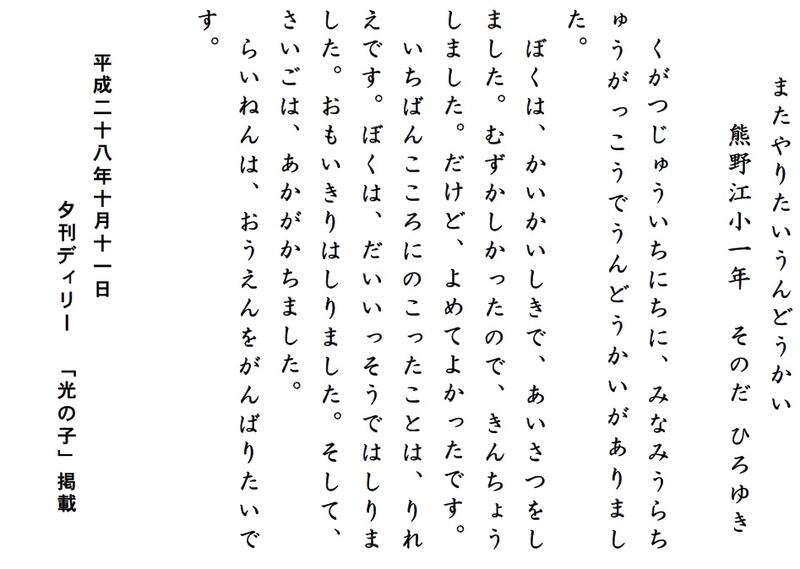 またやりたいうんどうかい
熊野江小一年　そのだ　ひろゆき
くがつじゅういちにちに、みなみうらち
ゅうがっこうでうんどうかいがありまし
た。
ぼくは、かいかいしきで、あいさつをし
ました。むずかしかったので、きんちょう
しました。だけど、よめてよかったです。
いちばんこころにのこったことは、りれ
えです。ぼくは、だいいっそうではしりま
した。おもいきりはしりました。そして、
さいごは、あかがかちました。
らいねんは、おうえんをがんばりたいで
す。
平成二十八年十月十一日
夕刊ディリー　「光の子」掲載